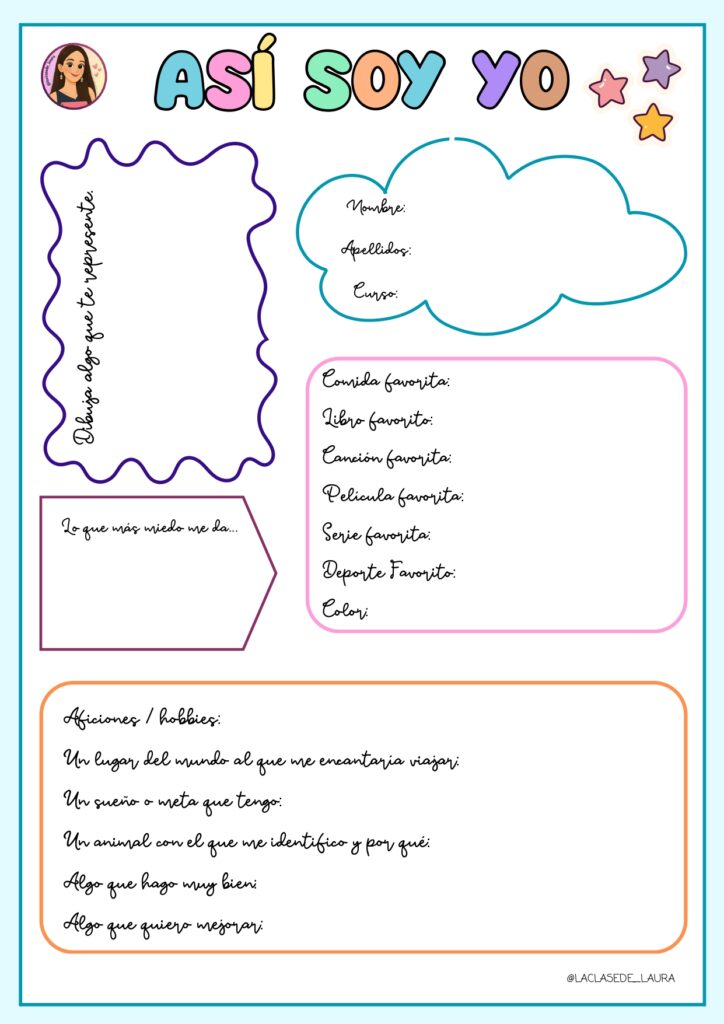 ASÍ SOY YO
Dibuja algo que te represente.
Nombre:
Apellidos:
Curso:
Comida favorita:
Libro favorito:
Canción favorita:
Película favorita:
Serie favorita:
Deporte Favorito:
Color:
Lo que más miedo me da...
Aficiones / hobbies:
Un lugar del mundo al que me encantaría viajar:
Un sueño o meta que tengo:
Un animal con el que me identifico y por qué:
Algo que hago muy bien:
Algo que quiero mejorar:
@LACLASEDE_LAURA